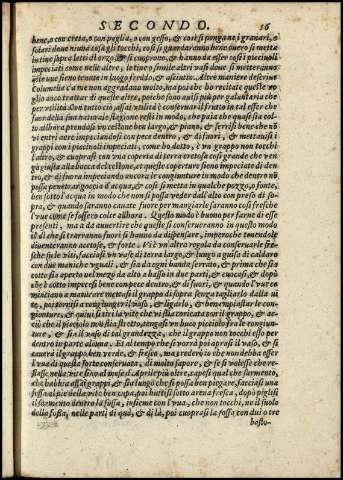 SECONDO. 56
bene, o con creta, o con paglia, o con gesso, & così si pongano i granari, e
intine pur
impeciati come nelle altre, in tine o simile altri vasi dove si mettevano
queste uve sieno tenute in luogo freddo, & asciutto. Altre maniere descrive
Columella c'a me non aggradano molto, ma poi che ho recitate queste vo
glio anco trattar di quelle altre, poiche sono quasi più per galantaria che
per utilità. Con tutto ciò assai utilità è conservar il frutto in tal esser che
fuor della sua naturale stagione resti in modo, che paia che quasi sia col-
to allhora prendasi vocellame ben largo, & piano, & servisi bene che nõ
vi entri aere impeciandosi con pece dentro, & di fuori, & mettansi i
grappi con i piccinoli impeciati, come ho detto, & un grappo non tocchi
l'altro, & cuoprasi con una coperta di terra cretosa così grande che ven
ga giusta alla bocca del vaso, et queste coperture sieno impeciate di den
tro, & di fuora impeciando ancora le congiunture in modo che dentro nõ
possa penetrar goccia d'acqua, & così si metta in qualche pozzo, o fonte,
ben sott'acqua in modo che non si possa veder dall'alto con presti di so-
pra, & quando saranno cavate fuore per mangiarle saranno così fresche
l'uve come se fossero colte allhora. Questo modo è buono per farne di esse
presenti, ma a da avvertire che queste si conserveranno in questo modo
il dì che si trarranno fuori si hanno da dispensare, imperoche tenendole
diventeranno acetose, & forte. Vi è un'altra regola da conservarle fre-
sche su le viti, faccisi un vaso di terra largo, & lungo a guisa di caldaro
con due maniche uguali, & sia da ogni banda serrato, & prima che sia
cotto sia aperto nel mezo da alto a basso in due parti, & cuocasi, & dopò
che è cotto impecisi bene con pece dentro, & di fuori, & quando l'uve co
minciano a maturare mettasi il grappo di sopra senza tagliarlo dalla vi
te, poi tornisi a ricongiungere il vaso, & ligarlo, & ben impiastar le con-
gionture, & quivi si tiri la vite che vi stia coricata con il grappo, & ac
ciò che il picciolo non stia stretto, tengasi un buco picciolo fra le congiun-
ture, & sia il vaso di tal grandezza, che il grappo non tocchi esso per
dentro in parte alcuna. Et al tempo che si vorrà poi aprasi il vaso, & si
caverà il grappo ben verde, & fresco, ma credo io che non debba esser
l'uva di questa sorte conservata, di molto sapore, & se si volesse che re-
stasse nella vite sin al mese d'Aprile più oltre, capesi qual che sarmento,
che habbia assai grappi, & sia lungo che si possa ben piegare, facciasi una
fossa al pie della vite ben cupa, poi buttisi sotto arena fresca, dopò pieghisi
il sarmento dentro la fossa, insieme con l'uva, che non tocchi, ne il suolo
della fossa, nelle parti di quà, & di là, poi cuoprasi la fossa con due o tre
basto-